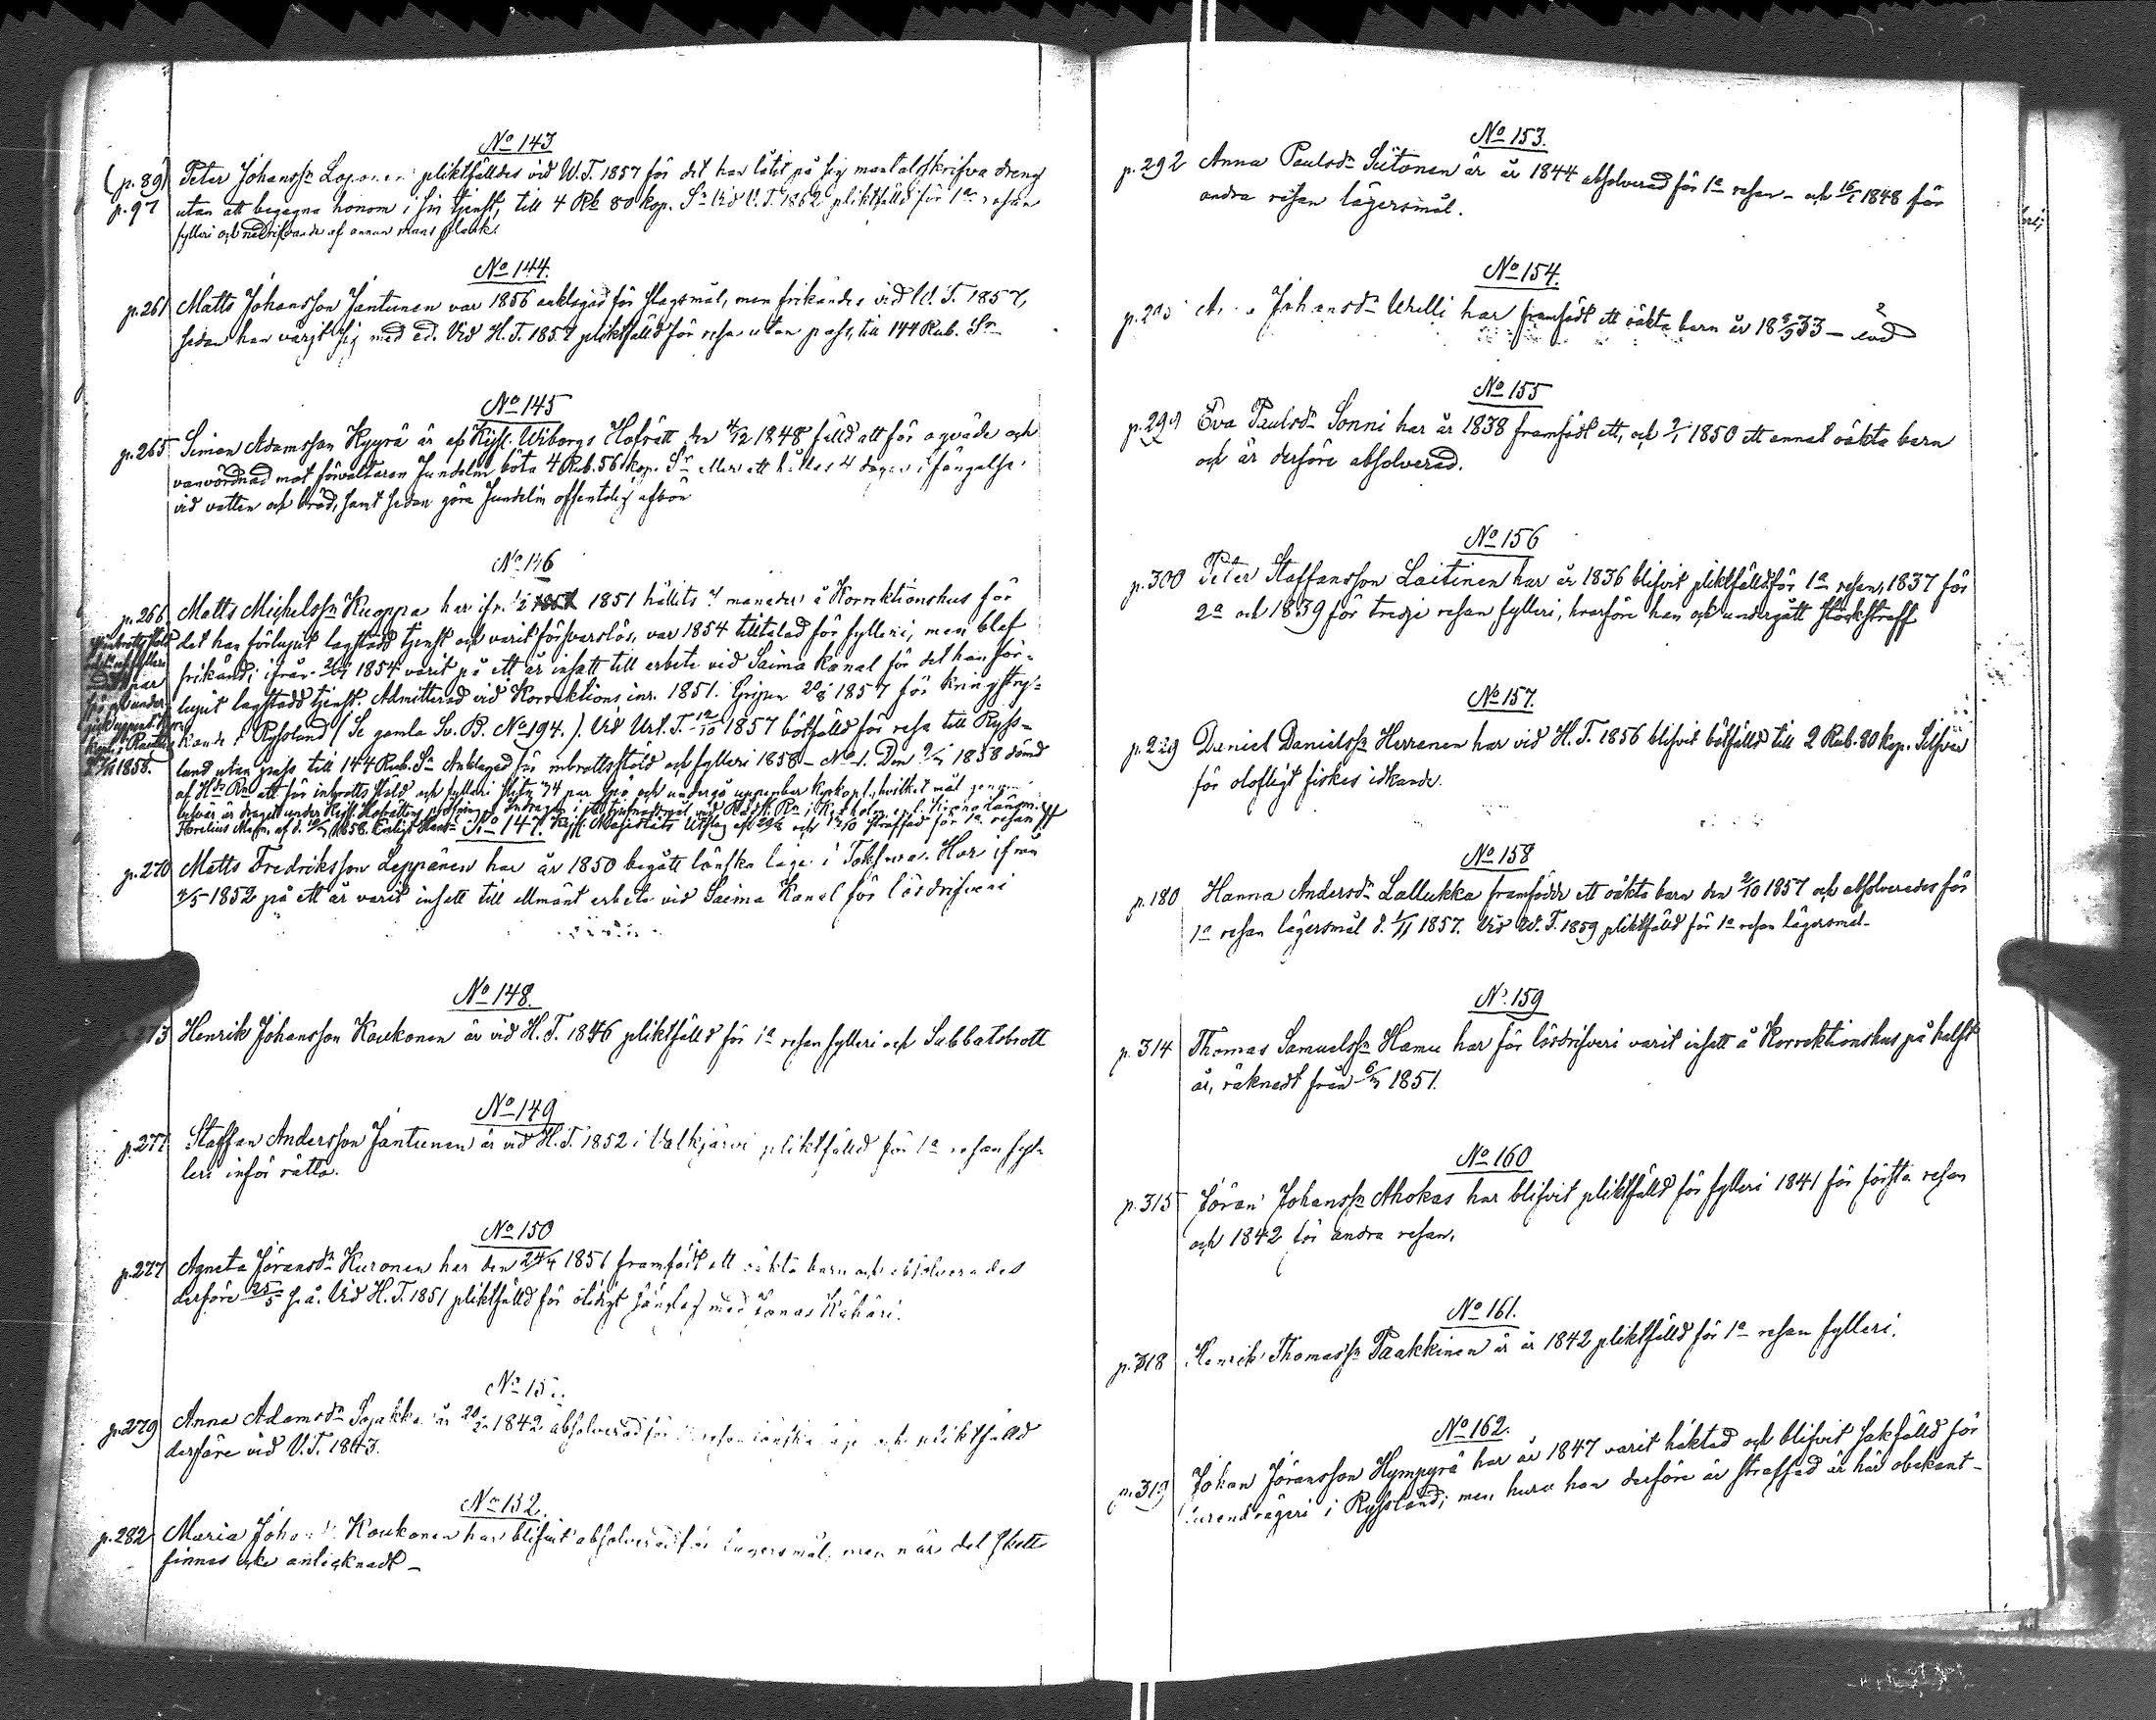 No 143
(p. 89) Peter Johanss:n Loponen pliktfälldes vid W.T. 1857 för det han låtit på sig mantalskrifva dreng
p. 97 utan att begagna honom i sin tjenst, till 4 Rb 80 kop. S:r Vid V.T. 1862 pliktfälld för 1:a resan
fylleri och af annan mans
No 144.
p. 261 Matts Johansson Jantunen var 1856 anklagad för slagsmål, men frikändes vid W.T. 1857,
sedan han värjt sig med ed. Vid H.T. 1857 pliktfälld för resa utan pass, till 144 Rub. S:r
No 145
p. 265 Simon Adamsson Kyyrä är af Kejs. Wiborgs Hofrätt den 4/12 1848 fälld att för oqväde och
vanvördnad mot förvaltaren Jundelin böta 4 Rub. 56 kop. S:r eller att hållas 4 dagar i fängelse
vid vatten och bröd, samt sedan göra Jundelin offentelig afbön
No 146
p. 266 Matts Michelss:n Kuoppa har ifr. 1851 hållits månader å Korrektionshus för
det han förlupit lagstadd tjenst och varit försvarslös, var 1854 tilltalad för fylleri, men blef
frikänd; ifrån 1854 varit på ett år insatt till arbete vid Saima kanal för det han för-
lupit lagstadd tjenst. Admitterad vid Korrektions inr. 1851. Gripen 20/8 1857 för kringstry-
kande i Ryssland (Se gamla Sv. B. No 194.) Vid Url. T. 12/10 1857 bötfälld för resa till Ryss-
land utan pass till 144 Rub. S:r Anklagad för inbrottsstöld och fylleri 1858 No 1. Den 1858 dömd
af H:ds R:n att för inbrotts stöld och fylleri par spö och undergå uppenbar kyrkopl., hvilket mål genom
besvär är draget under Kejs. Hofrättens
1855.
No 147.
p. 270 Matts Fredriksson Leppänen har år 1850 begått lönska läge i Toksova. Har ifrån
4/5 1852 på ett år varit insatt till allmänt arbete vid Saima Kanal för lösdrifveri
No 148.
Henrik Johansson Koukonen är vid H.T. 1846 pliktfälld för 1:a resan fylleri och Sabbatsbrott
No 149
p. 277 Staffan Andersson Jantunen är vid H.T. 1852 i Valkjärvi pliktfälld för 1:a resan fyl-
leri inför rätta.
No 150
p. 277 Agneta Jöransd:r Kuronen har den 24/4 1851 framfödt ett oäkta barn och absolverades
derföre 25/5 s. å. Vid H.T. 1851 pliktfälld för olofligt sänglag med Jonas Kähäri.
No 15
p. 279 Anna Adamsd:r Sojakka är 1842 absolverad för resan lönska läge och pliktfälld
derföre vid V.T. 1843.
No 152.
p. 282 Maria Joha Koukonen har blifvit absolverad för lägersmål, men när det skett
finnes icke antecknadt
No 153.
p. 292 Anna Paulsd:r Siitonen är år 1844 absolverad för 1:a resan och 1848 för
andra resan lägersmål.
No 154.
Johansd:r Urelli har framfödt ett oäkta barn år 1833
No 155
p. 299 Eva Paulsd:r Sonni har år 1838 framfödt ett, och 1850 ett annat oäkta barn
och är derföre absolverad.
No 156
p. 300 Peter Staffansson Laitinen har år 1836 blifvit pliktfälld för 1:a resan, 1837 för
2:a och 1839 för tredje resan fylleri, hvarföre han och undergått stockstraff
No 157.
p. 229 Daniel Danielss:n Herranen har vid H.T. 1856 blifvit bötfälld till 2 Rub. 80 kop. Silfver
för olofligt fiskes idkande.
No 158
p. 180 Hanna Andersd:r Lallukka framfödde ett oäkta barn den 2/10 1857 och absolverades för
1:a resan lägersmål d. 1/11 1857. Vid W.T. 1859 pliktfälld för 1:a resan lägersmål
No 159
p. 314 Thomas Samuelss:n Hamu har för lösdrifveri varit insatt å Korrektionshus på halft
år, räknadt från 1851.
No 160
p. 315 Jöran Johanss:n Ahokas har blifvit pliktfälld för fylleri 1841 för första resan
och 1842 för andra resan.
No 161.
p. 318 Henrik Thomass:n Paakkinen är år 1842 pliktfälld för 1:a resan fylleri.
No 162.
p. 319 Johan Jöransson Hympyrä har år 1847 varit häktad och blifvit sakfälld för
lurendrägeri i Ryssland; men huru han derföre är straffad är här obekant